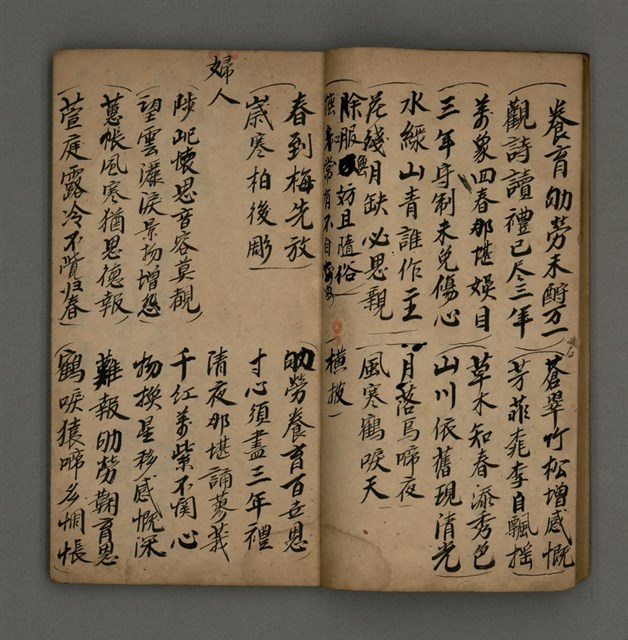 養育劬勞未酧万一
蒼翠竹松增感慨
觀詩讀禮已尽三年
芳菲桃李自飄搖
萬象回春那堪娛目
草木知春添秀色
三年守制未免傷心
山川依舊現清光
水緑山青誰作主
月落烏啼夜
花綫月缺必思親
風寒鶴唳天
除服妨且隨俗
橫披
春到梅先放
歲寒柏後彫
婦人
劬勞養育百世恩
寸心須盡三年禮
陟屺懷思音容莫覩
清夜那堪誦蓼莪
望雲灑淚景物增怨
千紅萬紫不関心
物換星移感慨深
蕙帳風寒猶思德報
難報劬勞鞠育恩
萱庭露冷不覺归春
鶴唳猿啼多惆悵